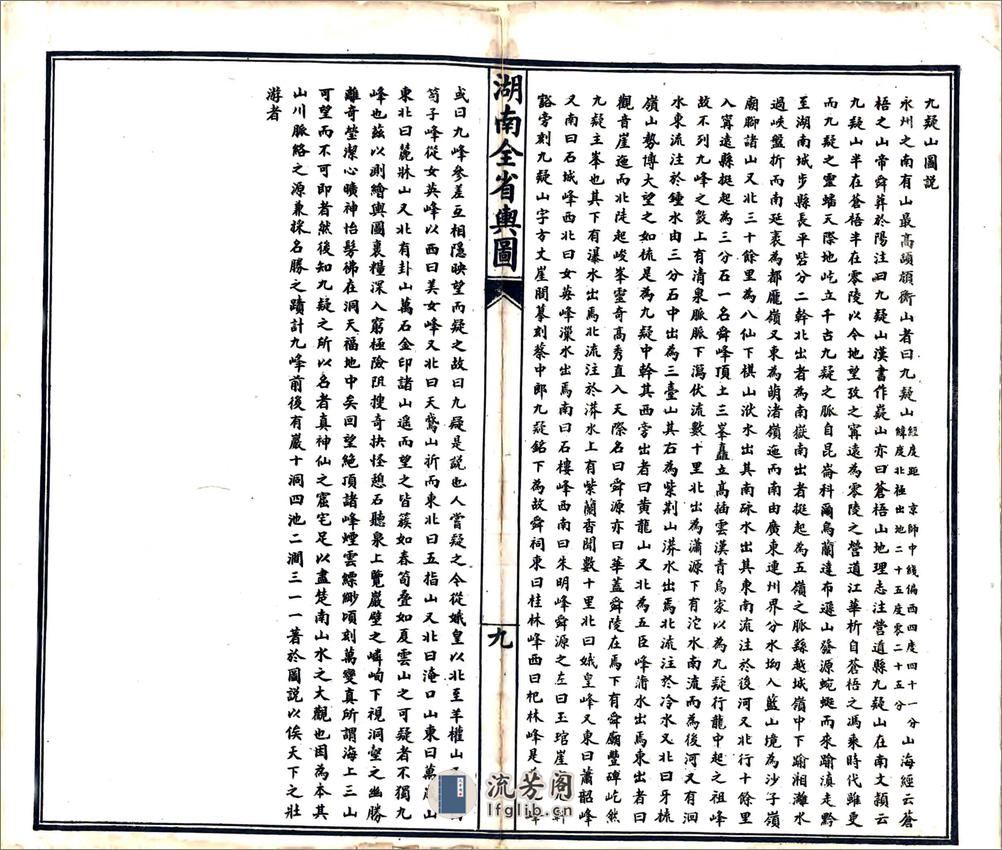 九疑山圖説
永州之南有山最高頏頡衡山者曰九疑山經度距京師中綫偏西四度四十一分緯度北極出地二十五度零二十五分山海經云蒼
梧之山帝舜葬於陽注曰九疑山漢書作嶷山亦曰蒼梧山地理志注營道縣九疑山在南文穎云
九疑山半在蒼梧半在零陵以今地望攷之寗遠為零陵之營道江華析自蒼梧之馮乘時代雖更
而九疑之靈蟠天際地屹立千古九疑之脈自昆崙科爾烏蘭達布遜山發源蜿蜒而來踰滇走黔
至湖南城步縣長平砦分二幹北出者為南嶽南出者挺起為五嶺之脈繇越城嶺中下踰湘灕水
過峽盤折而南延袤為都龐嶺又東為萌渚嶺迤而南由廣東連州界分水坳入藍山境為沙子嶺
廟腳諸山又北三十餘里為八仙下棋山洑水出其南砅水出其東南流注於後河又北行十餘里
入寗遠縣挺起為三分石一名舜峰頂上三峯矗立高插雲漢青烏家以為九疑行龍中起之祖峰
故不列九峰之數上有清泉脈脈下瀉伏流數十里北出為瀟源下有沱水南流而為後河又有洄
水東流注於鍾水由三分石中出為三臺山其右為紫荆山漭水出焉北流注於冷水又北曰牙梳
嶺山勢博大望之如梳是為九疑中幹其西旁出者曰黃龍山又北為五臣峰潲水出焉東出者曰
觀音崖迤而北陡起峻峯靈奇高秀直入天際名曰舜源亦曰華蓋舜陵在焉下有舜廟豐碑屹然
九疑主峯也其下有瀑水出焉北流注於漭水上有紫蘭香聞數十里北曰娥皇峰又東曰蕭韶峰
又南曰石城峰西北曰女英峰灈水出焉南曰石樓峰西南曰朱明峰舜源之左曰玉琯崖
豁旁刻九疑山字方丈崖間摹刻蔡中郎九疑銘下為故舜祠東曰桂林峰西曰杞林峰是
湖南全省輿圖
九
或曰九峰參差互相隱映望而疑之故曰九疑是説也人嘗疑之今從娥皇以北至羊權山
筍子峰從女英峰以西曰美女峰又北曰天鵞山祈而東北曰五指山又北曰淹口山東曰萬
東北曰麂牀山又北有卦山萬石金印諸山遙而望之皆簇如春筍叠如夏雲山之可疑者不獨九
峰也茲以測繪輿圖裹糧深入窮極險阻搜奇抉怪憩石聽泉上覽巖壁之嶙峋下視洞壑之幽勝
離奇瑩潔心曠神怡髣彿在洞天福地中矣回望絶頂諸峰煙雲縹緲頃刻萬變真所謂海上三山
可望而不可即者然後知九疑之所以名者真神仙之窟宅足以盡楚南山水之大觀也因為本其
山川脈絡之源兼採名勝之蹟計九峰前後有巖十洞四池二澗三一一著於圖説以俟天下之壯
游者
流芳阁
lfglib.cn